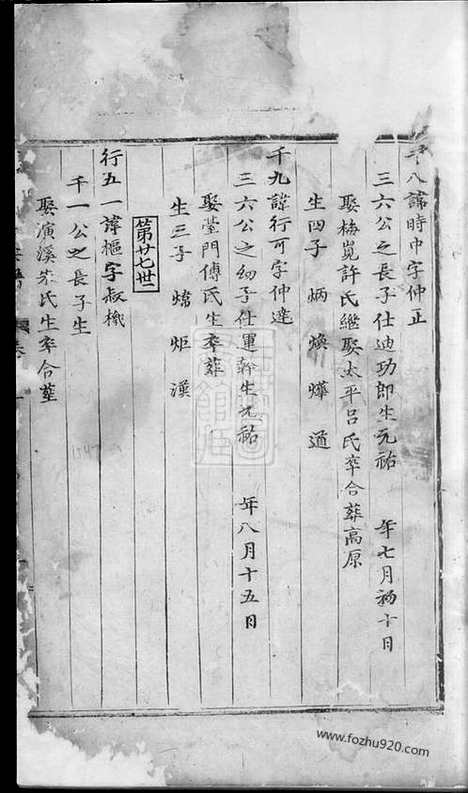 千八諱時中字仲正
三六公之長子仕迪功郎生元祐 年七月初十日
娶梅峴許氏繼娶太平呂氏卒合葬高原
生四子 炳 煥 燁 道
千九諱行可字仲達
三六公之幼子仕運幹生元祐 年八月十五日
娶臺門傅氏生卒葬
生三子 煒 炬 漢
第廿七世
行五一諱樞字叔機
千一公之長子生
娶演溪朱氏生卒合葬
www.fozhu920.com